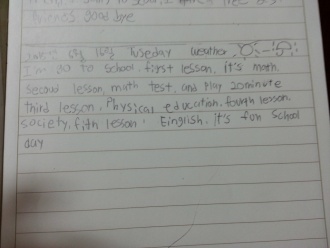 friends, good bye
Tuseday weather
I'm go to school, first lesson, it's math
second lesson, math test, and play 20minute
third lesson, Physical education, fough lesson,
society, fith lesson, Einglish, it's fun school
day